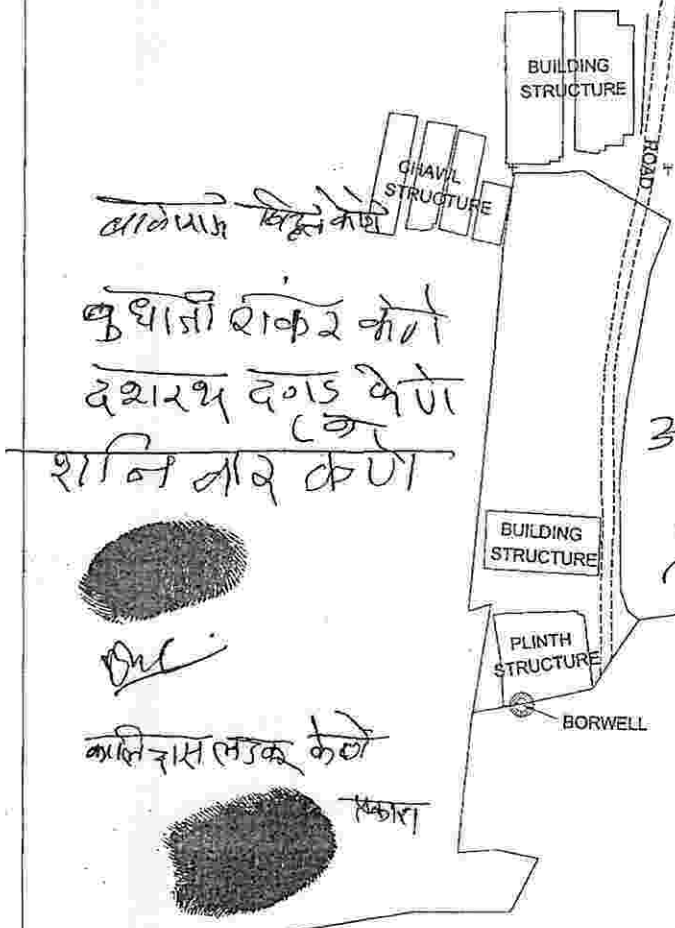 BUILDING
STRUCTURE
CHAWL
STRUCTURE
ROAD
बुधाजी शंकर केणे
दशरथ दगडू केणे
शनिवार केणे
BUILDING
STRUCTURE
PLINTH
STRUCTURE
BORWELL
कालिदास लडकू केणे